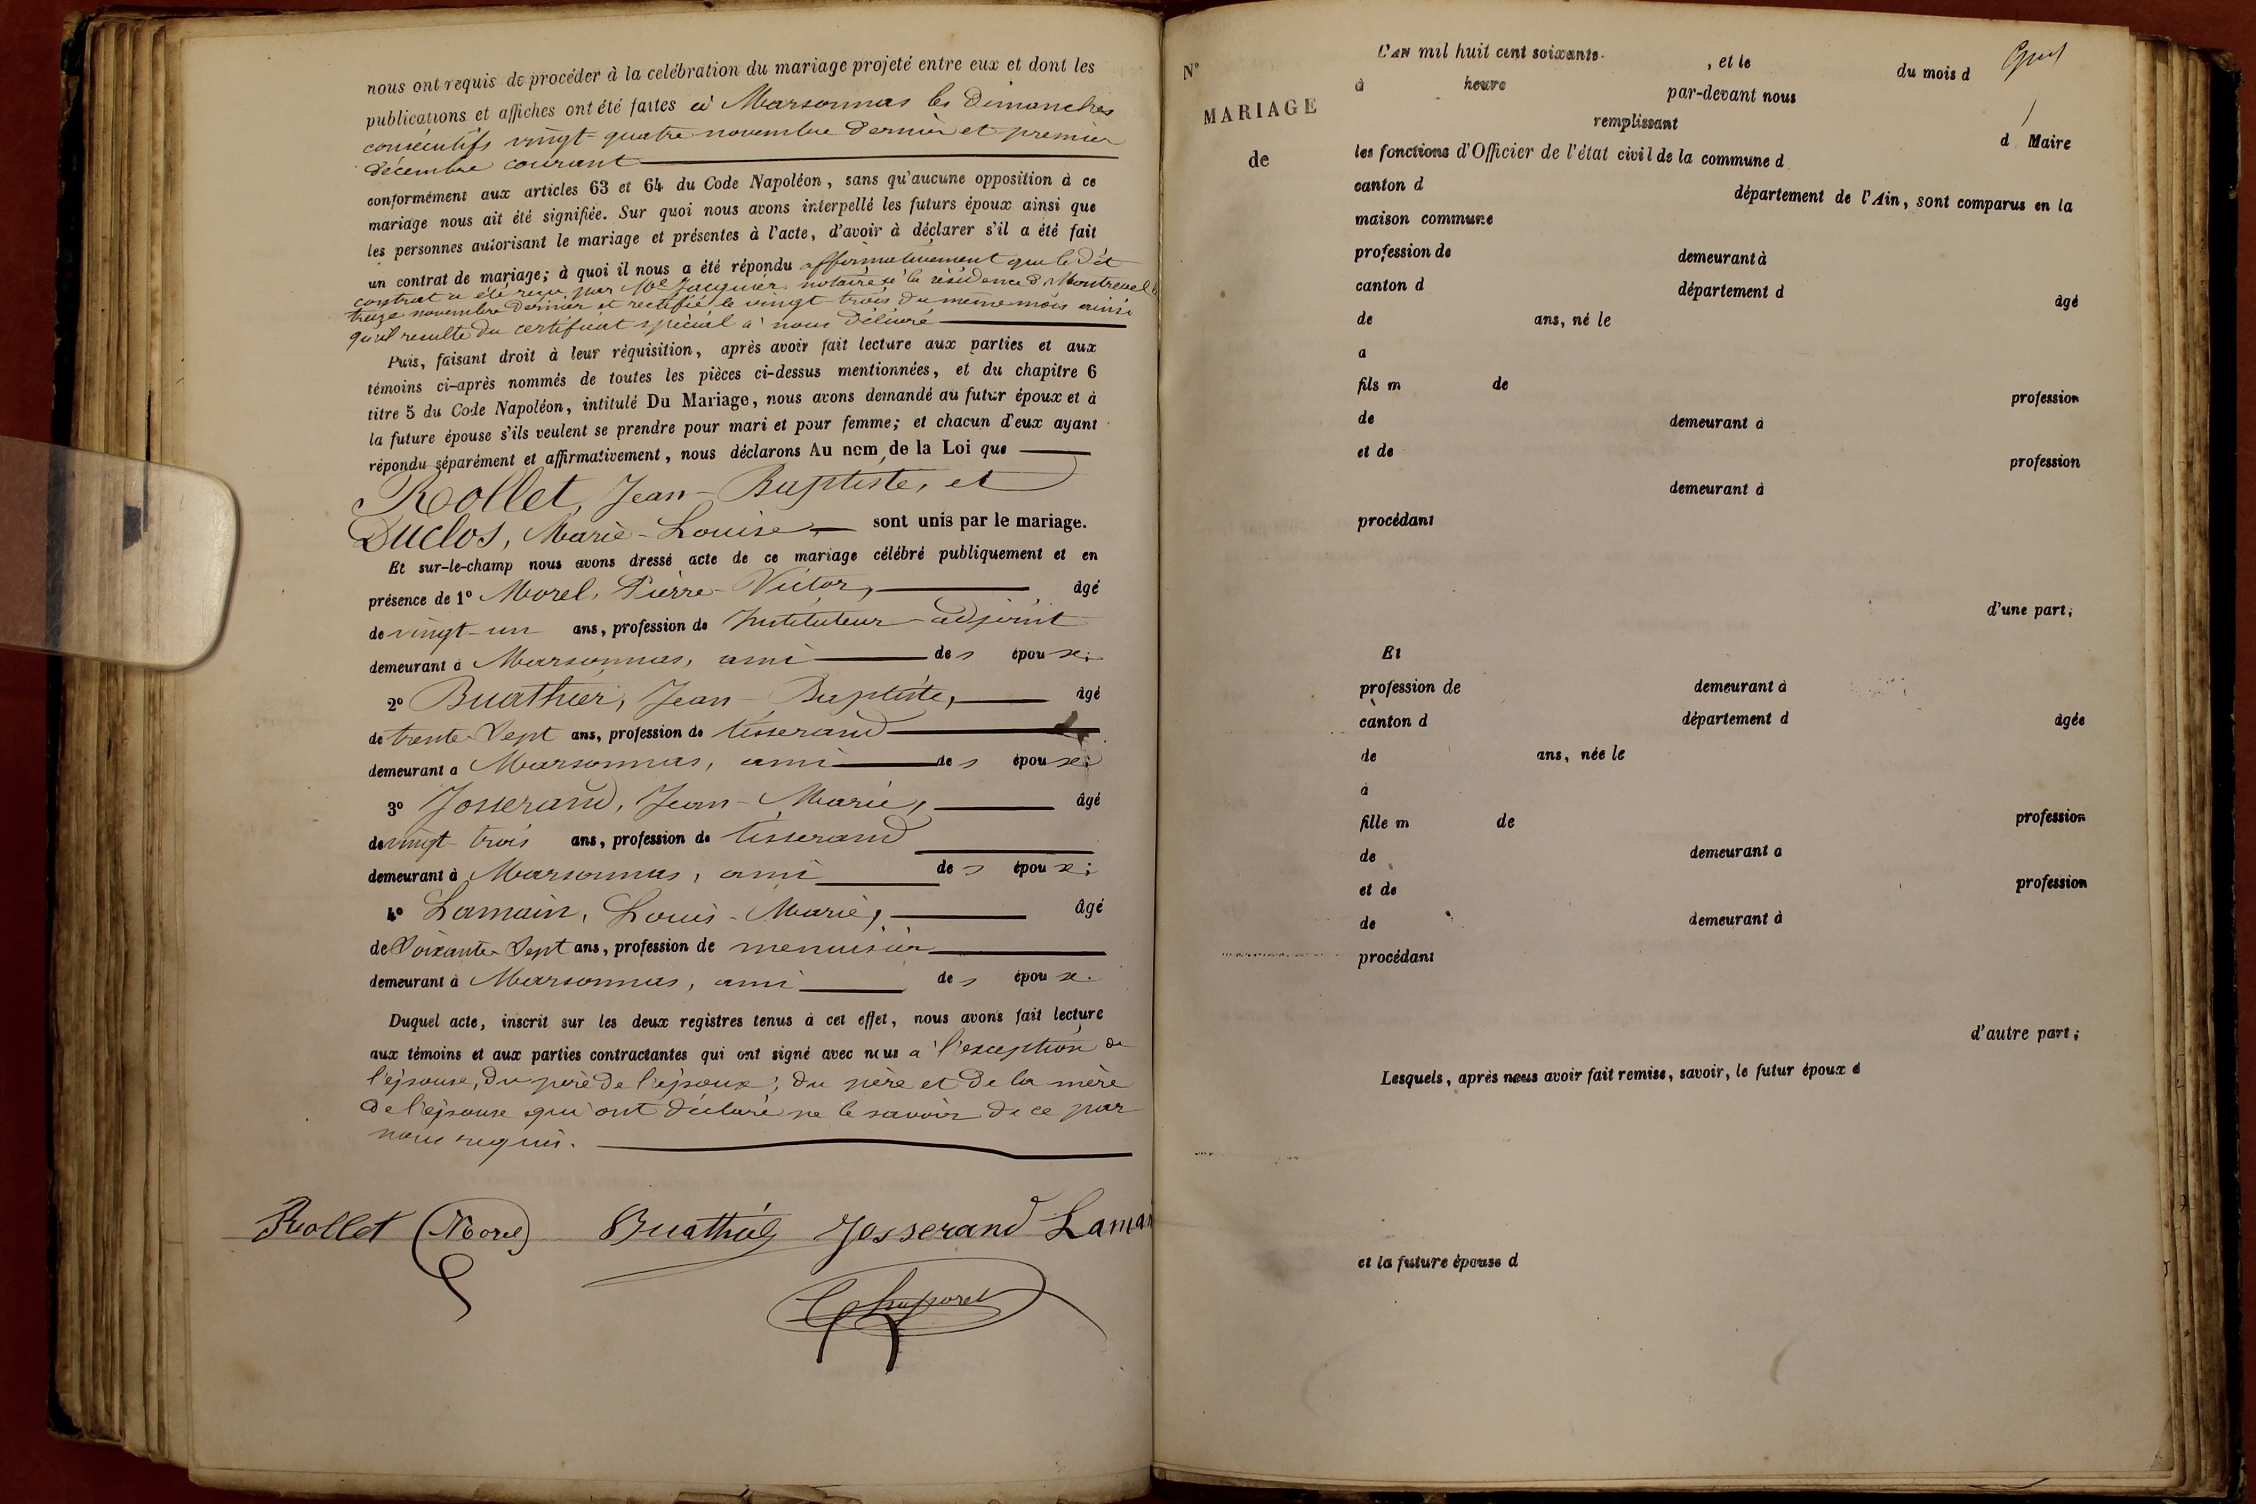 nous ont requis de procéder à la celébration du mariage projeté entre eux et dont les
publications et affiches ont été faites à Marsonnas les dimanches
consécutifs vingt-quatre novembre dernier et premier
décembre courant
conformément aux articles 63 et 64 du Code Napoléon, sans qu'aucune opposition à ce
mariage nous ait été signifiée. Sur quoi nous avons interpellé les futurs époux ainsi que
les personnes autorisant le mariage et présentes à l'acte, d'avoir à déclarer s'il a été fait
un contrat de mariage; à quoi il nous a été répondu affirmativement que le dit
contrat a été reçu par Me Jacquier notaire à la résidence de Montrevel le
treize novembre dernier et rectifié le vingt-trois du même mois ainsi
qu'il résulte du certificat spécial à nous délivré
Puis, faisant droit à leur réquisition, après avoir fait lecture aux parties et aux
témoins ci-après nommés de toutes les pièces ci-dessus mentionnées, et du chapitre 6
titre 5 du Code Napoléon, intitulé Du Mariage, nous avons demandé au futur époux et à
la future épouse s'ils veulent se prendre pour mari et pour femme; et chacun d'eux ayant
répondu séparément et affirmativement, nous déclarons Au nom de la Loi que
Rollet, Jean-Baptiste, et
Duclos, Marie-Louise, sont unis par le mariage.
Et sur-le-champ nous avons dressé acte de ce mariage célébré publiquement et en
présence de 1º Morel, Pierre-Victor, âgé
de vingt-un ans, profession de Instituteur-adjoint
demeurant à Marsonnas, ami des époux;
2º Buathier, Jean-Baptiste, âgé
de trente-sept ans, profession de tisserand
demeurant a Marsonnas, ami des époux;
3º Josserand, Jean-Marie, âgé
de vingt-trois ans, profession de tisserand
demeurant à Marsonnas, ami des époux;
4º Lamain, Louis-Marie, âgé
de soixante-sept ans, profession de menuisier
demeurant à Marsonnas, ami des époux.
Duquel acte, inscrit sur les deux registres tenus à cet effet, nous avons fait lecture
aux témoins et aux parties contractantes qui ont signé avec nous à l'exception de
l'épouse, du père de l'époux; du père et de la mère
de l'épouse qui ont déclaré ne le savoir de ce par
nous requis.
Rollet Morel Buathier Josserand Lamain
Nº
MARIAGE
de
L'AN mil huit cent soixante- , et le du mois d
à heure par-devant nous
remplissant
les fonctions d'Officier de l'état civil de la commune d d Maire
canton d département de l'Ain, sont comparus en la
maison commune
profession de demeurant à
canton d département d âgé
de ans, né le
a
fils m de profession
de demeurant à
et de profession
demeurant à
procédant
d'une part;
Et
profession de demeurant à
canton d département d âgée
de ans, née le
à
fille m de profession
de demeurant a
et de profession
de demeurant à
procédant
d'autre part;
Lesquels, après nous avoir fait remise, savoir, le futur époux d
et la future épouse d